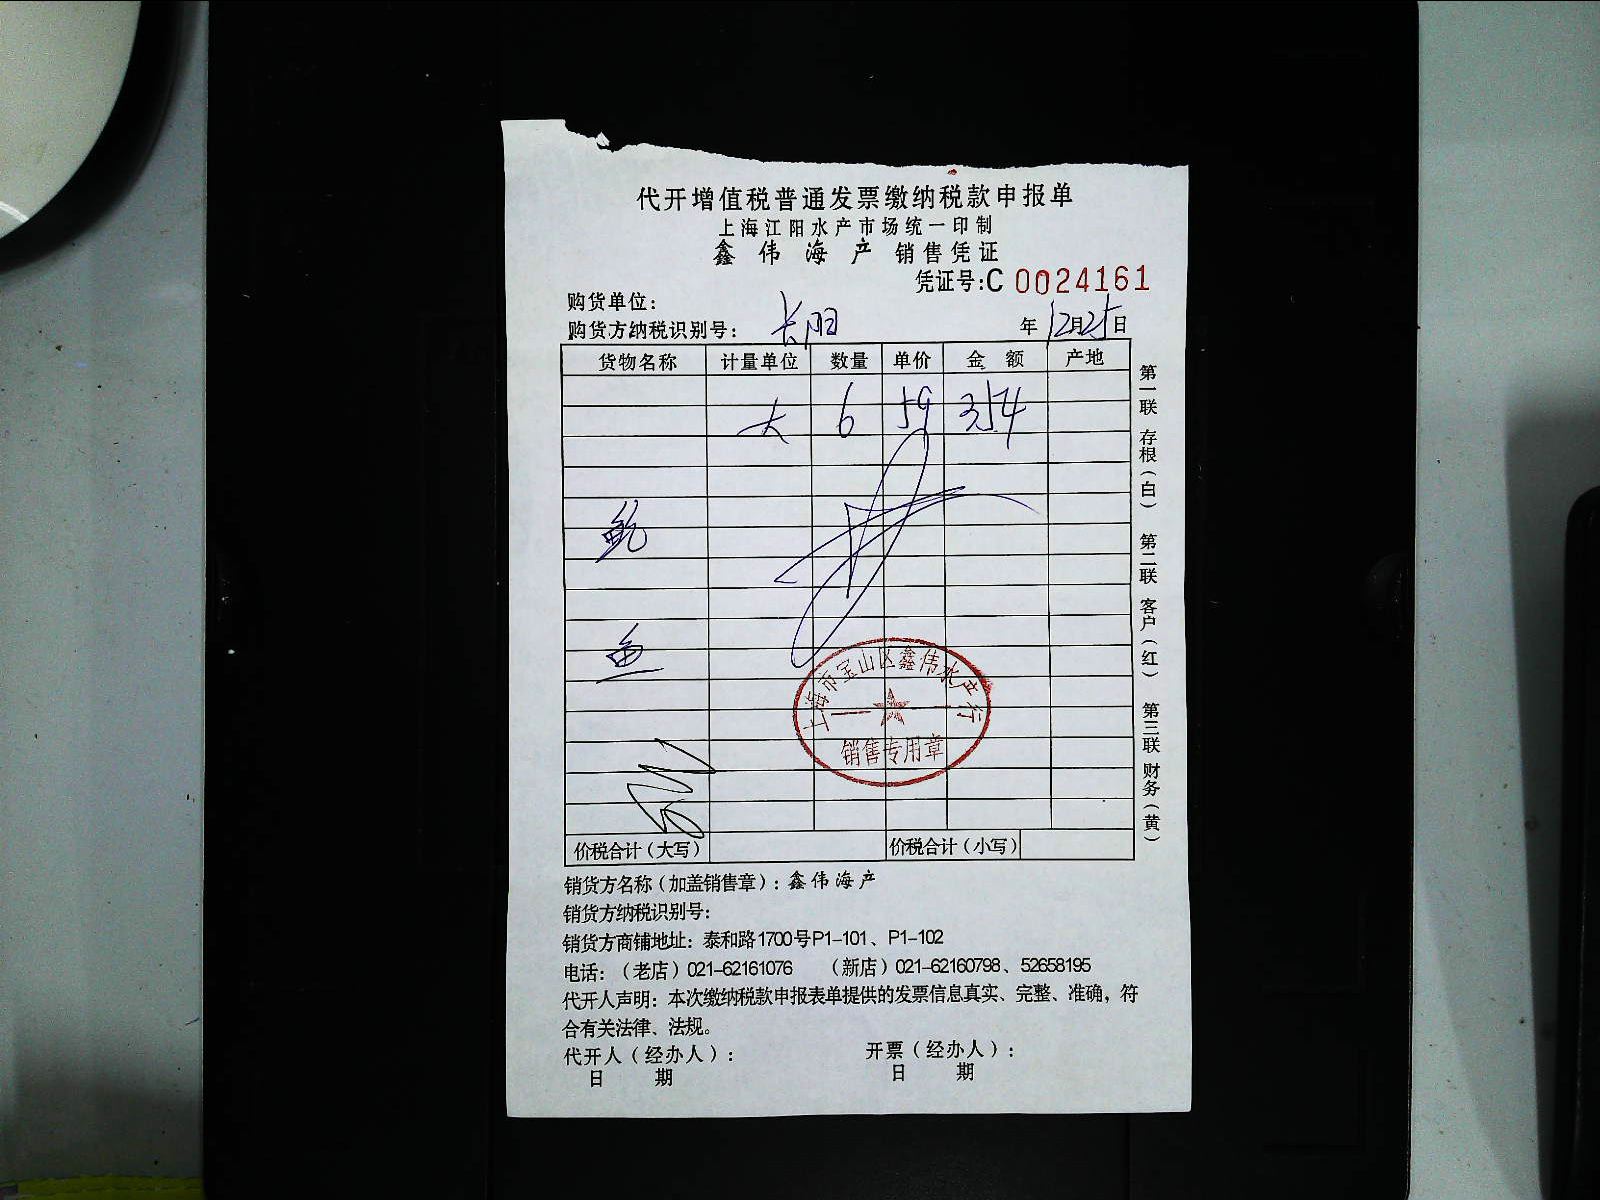 代开增值税普通发票缴纳税款申报单
上海江阳水产市场统一印制
鑫伟海产 销售凭证
凭证号:C 0024161
购货单位:
购货方纳税识别号: 长阳 年 12月25日
货物名称 计量单位 数量 单价 金额 产地
大 6 59 354
鲍
鱼
上海市宝山区鑫伟水产行
销售专用章
价税合计(大写) 价税合计(小写)
第一联 存根(白) 第二联 客户(红) 第三联 财务(黄)
销货方名称(加盖销售章): 鑫伟海产
销货方纳税识别号:
销货方商铺地址: 泰和路1700号P1-101、P1-102
电话: (老店) 021-62161076 (新店) 021-62160798、52658195
代开人声明: 本次缴纳税款申报表单提供的发票信息真实、完整、准确, 符
合有关法律、法规。
代开人(经办人): 开票(经办人):
日 期 日 期